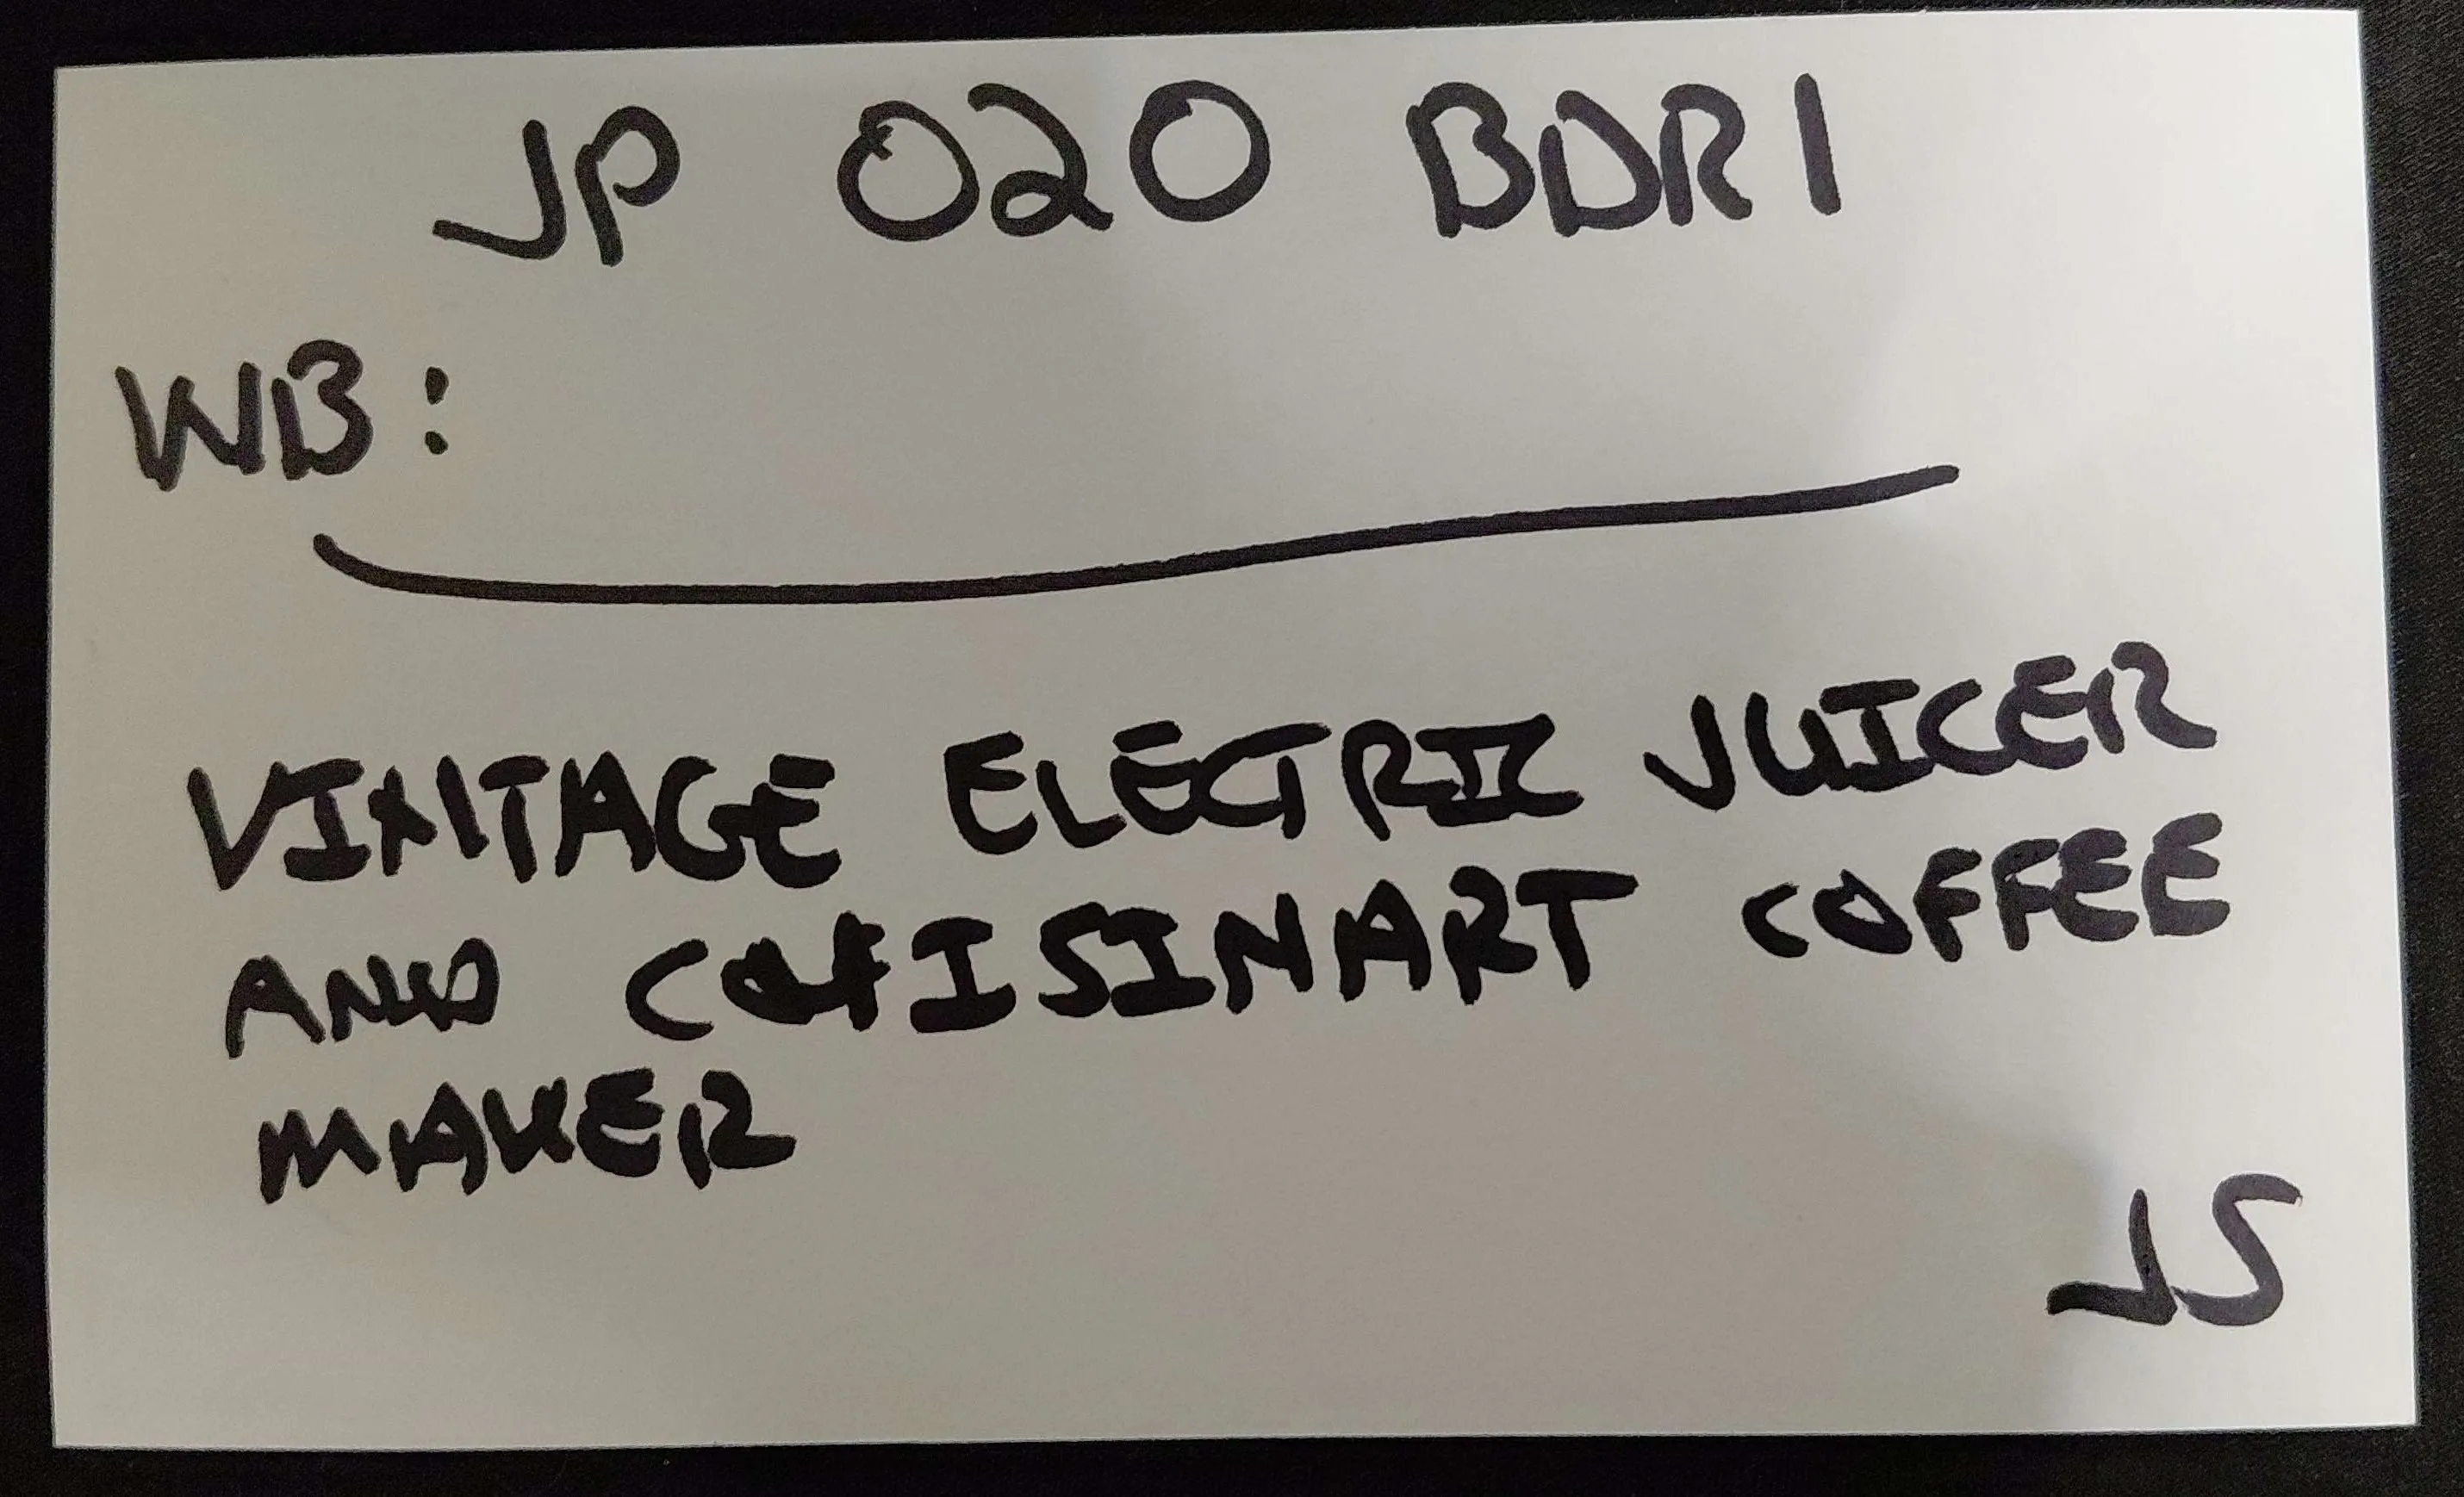 JP 020 BDR1
WB:
VINTAGE ELECTRIC JUICER
AND CUISINART COFFEE
MAKER
JS